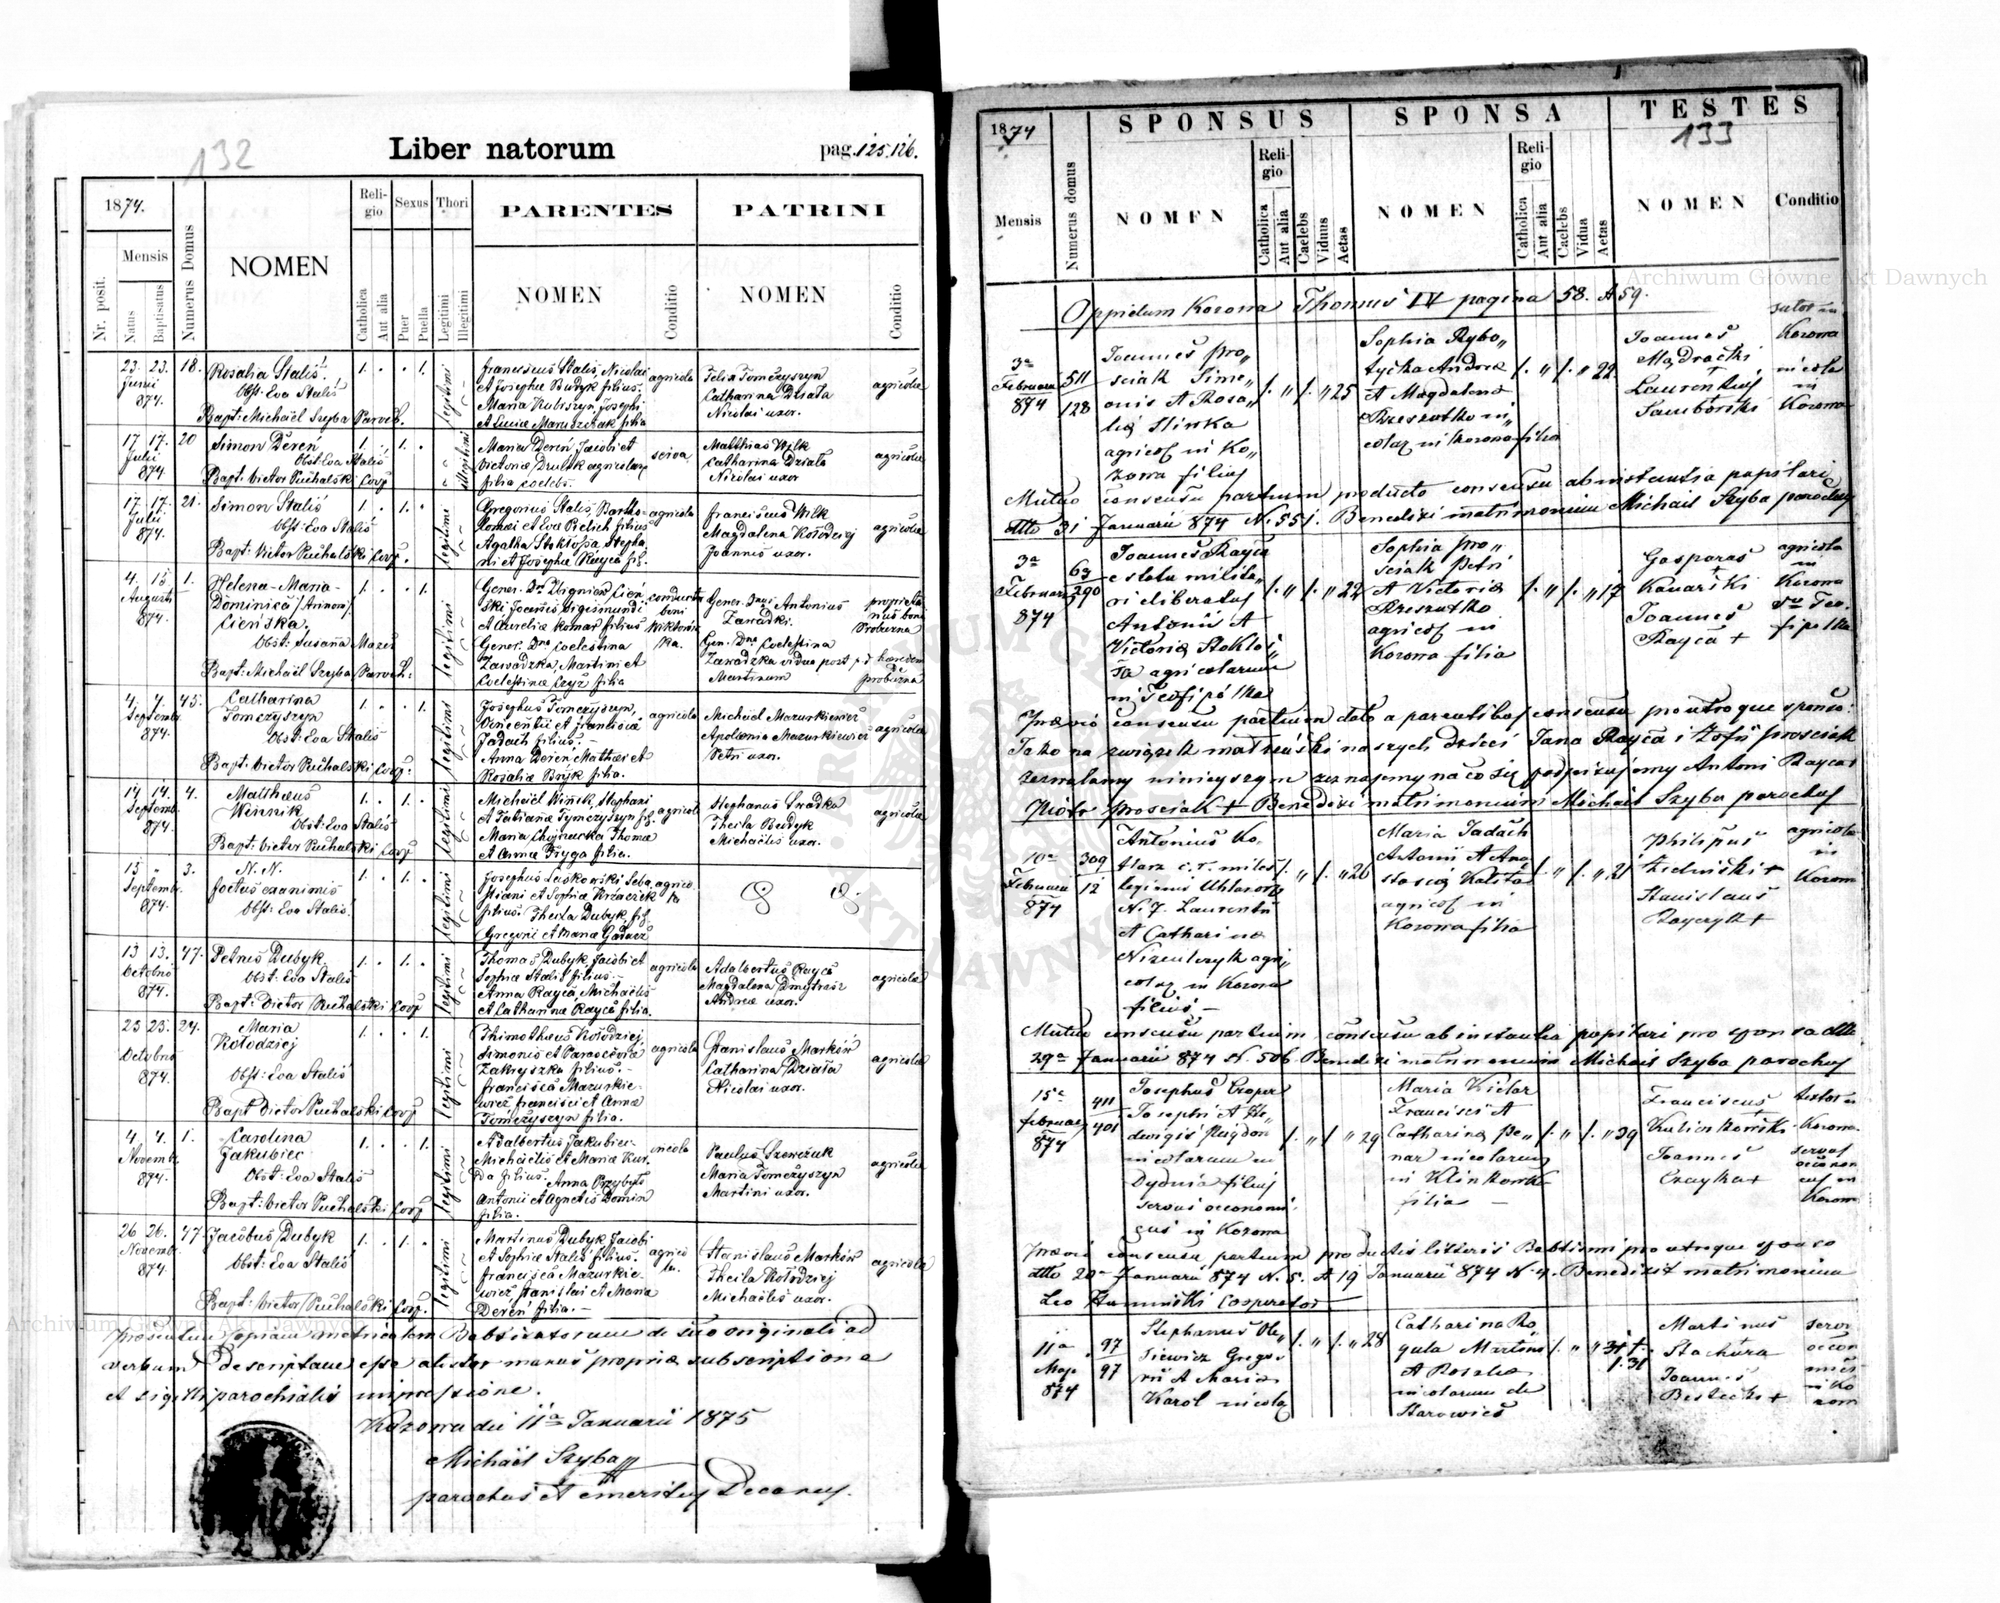 132
Liber natorum
pag. 125. 126.
1874.
Mensis
Nr. posit.
Natus
Baptisatus
Numerus Domus
NOMEN
Religio
Catholica
Aut alia
Sexus
Puer
Puella
Thori
Legitimi
Illegitimi
PARENTES
NOMEN
Conditio
PATRINI
NOMEN
Conditio
23. 23. 18.
Junii
874.
Rosalia Staliś
Obst: Eva Staliś
Bapt: Michaël Szyba Paroch.
1. . . 1.
legitimi
Franciscus Staliś, Nicolai
et Josephae Budyk filius.
Maria Kubiszyn Josephi
et Luciae Maruszczak filia
agricola
Felix Tomczyszyn
Catharina Działa
Nicolai uxor.
agricolae
17 17. 20
Julii
874.
Simon Dereń
Obst: Eva Staliś
Bapt: Victor Puchalski Coop
1. . 1. .
illegitimi
Maria Dereń, Jacobi et
Victoriae Drulik agricolarum
filia coelebs.
Matthias Wilk
Catharina Działa
Nicolai uxor
agricolae
17. 17. 21.
Julii
874.
Simon Staliś
Obst: Eva Staliś
Bapt: Victor Puchalski Coop.
1. . 1. .
legitimi
Gregorius Staliś, Bartho-
lomaei et Eva Relich filius
Agatha Stokłosa Stepha
ni et Josephae Rayca fil.
agricola
Franciscus Wilk
Magdalena Kołodziej
Joannis uxor.
agricolae
4. 15. 1.
Augusti
874.
Helena-Maria-
Dominica
Cieńska.
Obst: Susanna Mazur
Bapt: Michaël Szyba Paroch:
1. . . 1.
legitimi
ski Joannis Sigismundi
et Aureliae Komar filius
Gener. Dna Coelestina
Zawadzka, Martini et
Coelestinae Czyż filia
Gener. Dnus Antonius
Zawadzki.
Gen. Dna Coelestina
Zawadzka vidua post
Martinum
4. 7. 45.
Septemb.
874.
Catharina
Tomczyszyn
Obst: Eva Staliś
Bapt: Victor Puchalski Coop.
1. . . 1.
legitimi
Josephus Tomczyszyn,
Vincentii et Franciscae
Jadach filius.
Anna Dereń, Mathaei et
Rosaliae Bryk filia.
agricola
Michaël Mazurkiewicz
Apolonia Mazurkiewicz
Petri uxor.
agricolae
14 14. 4.
Septemb.
874.
Matthaeus
Winnik
Obst: Eva Staliś
Bapt: Victor Puchalski Coop
1. . 1. .
legitimi
Michaël Winik, Stephani
et Tatianae Tymczyszyn fil.
Maria Chojnacka Thomae
et Annae Fryga filia.
agricola
Stephanus Sradka
Theila Budyk
Michaëlis uxor.
agricolae
15 " 3.
Septemb.
874.
N. N.
foetus exanimis
Obst: Eva Staliś
1. . 1. .
legitimi
Josephus Laskowski Seba
stiani et Sophiae Krzaczek
filius. Theila Dubyk, fil.
Gregorii et Mariae Gadacz
13 13. 47.
Octobris
874.
Petrus Dubyk
Obst: Eva Staliś
Bapt: Victor Puchalski Coop
1. . 1. .
legitimi
Thomas Dubyk Jacobi et
Sophiae Staliś filius.-
Anna Rayca, Michaëlis
et Catharinae Rayca filia.
agricola
Adalbertus Rayca
Magdalena Dmytrasz
Andreae uxor.
agricolae
25 25. 24.
Octobris
874.
Maria
Kołodziej
Obst: Eva Staliś
Bapt Victor Puchalski Coop
1. . . 1.
legitimi
Thimotheus Kołodziej
Simonis et Parascevia
Zakryszka filius.-
Francisca Mazurkie-
wicz Francisci et Annae
Tomczyszyn filia.
agricola
Stanislaus Marków
Catharina Działa
Nicolai uxor.
agricolae
4. 4. 1.
Novemb.
874.
Carolina
Jakubiec
Obst: Eva Staliś
Bapt: Victor Puchalski Coop
1. . . 1.
legitimi
Adalbertus Jakubiec-
Michaëlis et Mariae Kur-
da filius. Anna Przybyło
Antonii et Agnetis Domin
filia.
Paulus Szewczuk
Maria Tomczyszyn
Martini uxor.
agricolae
26 26. 47.
Novemb.
874.
Jacobus Dubyk
Obst: Eva Staliś
Bapt: Victor Puchalski Coop.
1. . 1. .
legitimi
Martinus Dubyk Jacobi
et Sophiae Staliś filius.
Francisca Mazurkie-
wicz, Stanislai et Maria
Dereń filia.-
Stanislaus Marków
Theila Kołodziej
Michaëlis uxor.
agricolae
Praesentem Copiam metricalem Babtisatorum de suo originali ad
verbum descriptam esse atestor manus propriae subscriptione
et sigilli parochialis impressione.
Kozowa die 11a Januarii 1875
Michaël Szyba
parochus et emeritus Decanus.
1874
SPONSUS
SPONSA
TESTES
133
Mensis
Numerus domus
NOMEN
Religio
Catholica
Aut alia
Caelebs
Viduus
Aetas
NOMEN
Religio
Catholica
Aut alia
Caelebs
Vidua
Aetas
NOMEN
Conditio
Oppidum Kozowa Thomus IV pagina 58. et 59.
3a
Februarii
874
511
128
Joannes Pro„
sciak Sime„
onis et Rosa„
lia Sliwka
agricol in Ko„
zowa filius
1. „ 1. „ 25
Sophia Rybo„
tycka Andreae
et Magdalena
Brzeszotko in„
colar in Kozowa filia
1. „ 1. „ 22
Joannes
Mądracki
Laurentius
Samborski
sutor in
Kozowa
incola
in
Kozowa
Mutuo consensu partium producto consensu ab instantia pupilari
dtto 31 Januarii 874 N. 551. Benedixi matrimonium Michaël Szyba parochus
3a
Februarii
874
63
290
Joannes Rayca
e statu milita„
ri liberatus
Antonii et
Victoria Stokło„
sa agricolarum
in Teofipólka
1. „ 1. „ 22
Sophia Pro„
sciak Petri
et Victoria
Brzeszotko
agricol in
Kozowa filia
1. „ 1. „ 17
Gasparus
Kanarski
Joannes
Rayca +
agricola
in
Kozowa
Praevio consensu partium dato a parentibus consensu pro utroque sponso:
Jako na związek małżeński naszych dzieci Jana Rayca i Zofii Prosciak
zezwalamy niniejszym zeznajemy na co się podpisujemy Antoni Rayca +
Piotr Prosciak + Benedixi matrimonium Michaël Szyba parochus
10a
Februarii
874
309
12
Antonius Ko„
tlarz c. r. miles
legionis Uhlanorum
N. 7. Laurentii
et Catharinae
Nizentczyk agri„
colar in Kozowa
filius -
1. „ 1. „ 26
Maria Jadach
Antonii et Ana
stasia Kaleta
agricol in
Kozowa filia
1. „ 1. „ 21
Philipus
Zieliński +
Stanislaus
Rayczyk +
agricola
in
Kozowa
Mutuo consensu partium, consensu ab instantia pupilari pro sponsa dtto
29a Januarii 874 N. 506 Benedixi matrimonium Michaël Szyba parochus
15a
Februarii
874
411
401
Josephus Cioper
Josephi et He„
dwigis Pigdon
incolarum in
Dydnia filius
servus oeconomi„
cus in Kozowa
1. „ 1. „ 29
Maria Kielar
Francisci et
Catharina Pe„
nar incolarum
in Klimkówka
filia -
1. „ 1. „ 39
Franciscus
Joannes
Czayka +
Kozowa
servus
oeconomi
cus in
Kozowa
Praevio consensu partium productis litteris Babtismi pro utroque sponso
dtto 20a Januarii 874 N. 5. et 19 Januarii 874 N. 4. Benedixit matrimonium
Leo Kaminski Cooperator
11a
Maji
874
97
97
Stephanus Ole„
siewicz Grego„
rii et Maria
Karol incolar
1. „ 1. „ 28
Catharina Ro„
gula Martini
et Rosalia
incolarum de
Starowieś
Martinus
Stachura
Joannes
Bestecki +